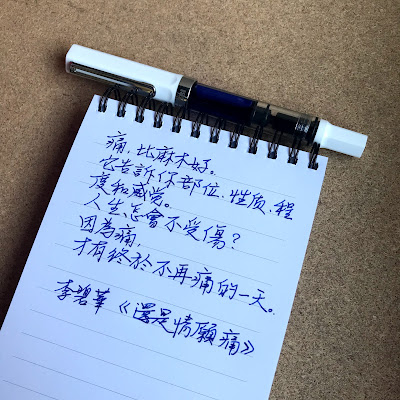 痛，比麻木好。
它告訴你部位、性质、程
度和感觉。
人生怎會不受傷？
因為痛，
才有終於不再痛的一天。
李碧華《還是情願痛》